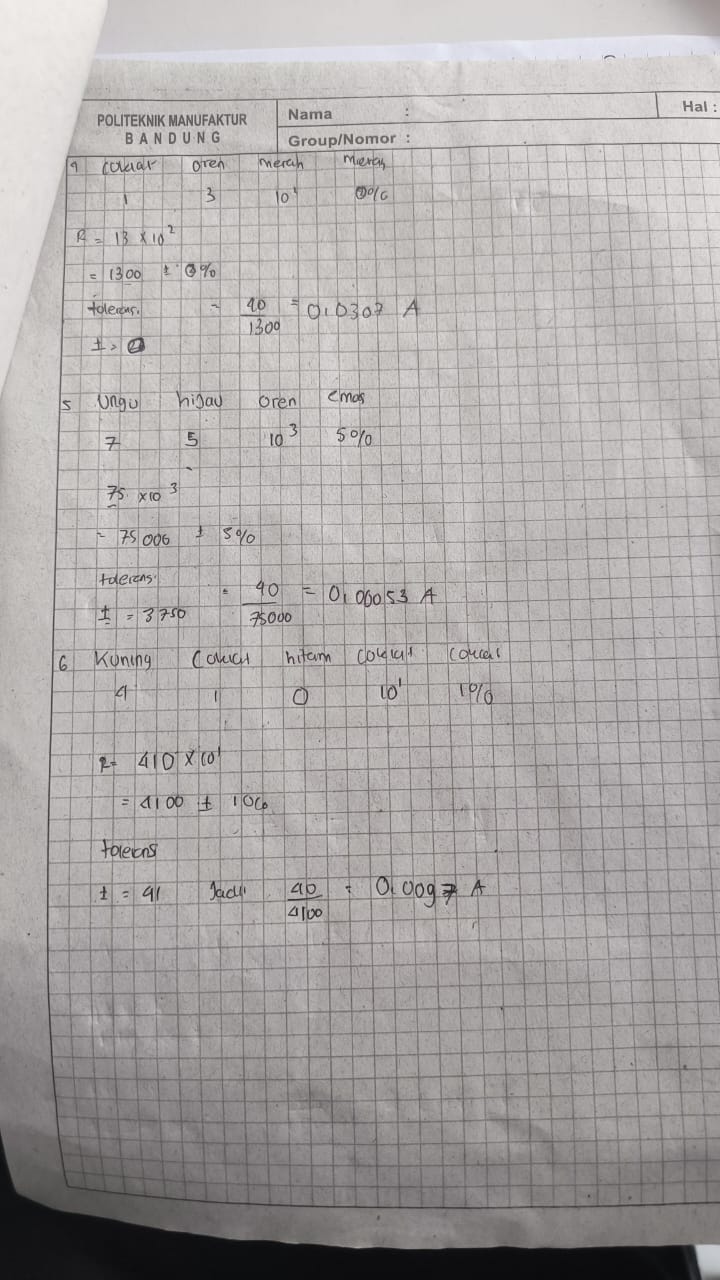 POLITEKNIK MANUFAKTUR
BANDUNG
Nama :
Hal :
Group/Nomor :
4 Coklat oren merah merah
1 3 10 %
R = 13 x 10²
= 1300 ± %
tolerans. = 40/1300 = 0,0307 A
± =
5 Ungu hijau oren emas
7 5 10³ 5%
75 x10³
= 75000 ± 5%
tolerans. = 40/75000 = 0,00053 A
± = 3750
6 Kuning Coklat hitam Coklat Coklat
4 1 0 10¹ 1%
R = 410 x 10¹
= 4100 ±
tolerans
± = 41 Jadi 40/4100 = 0,0097 A